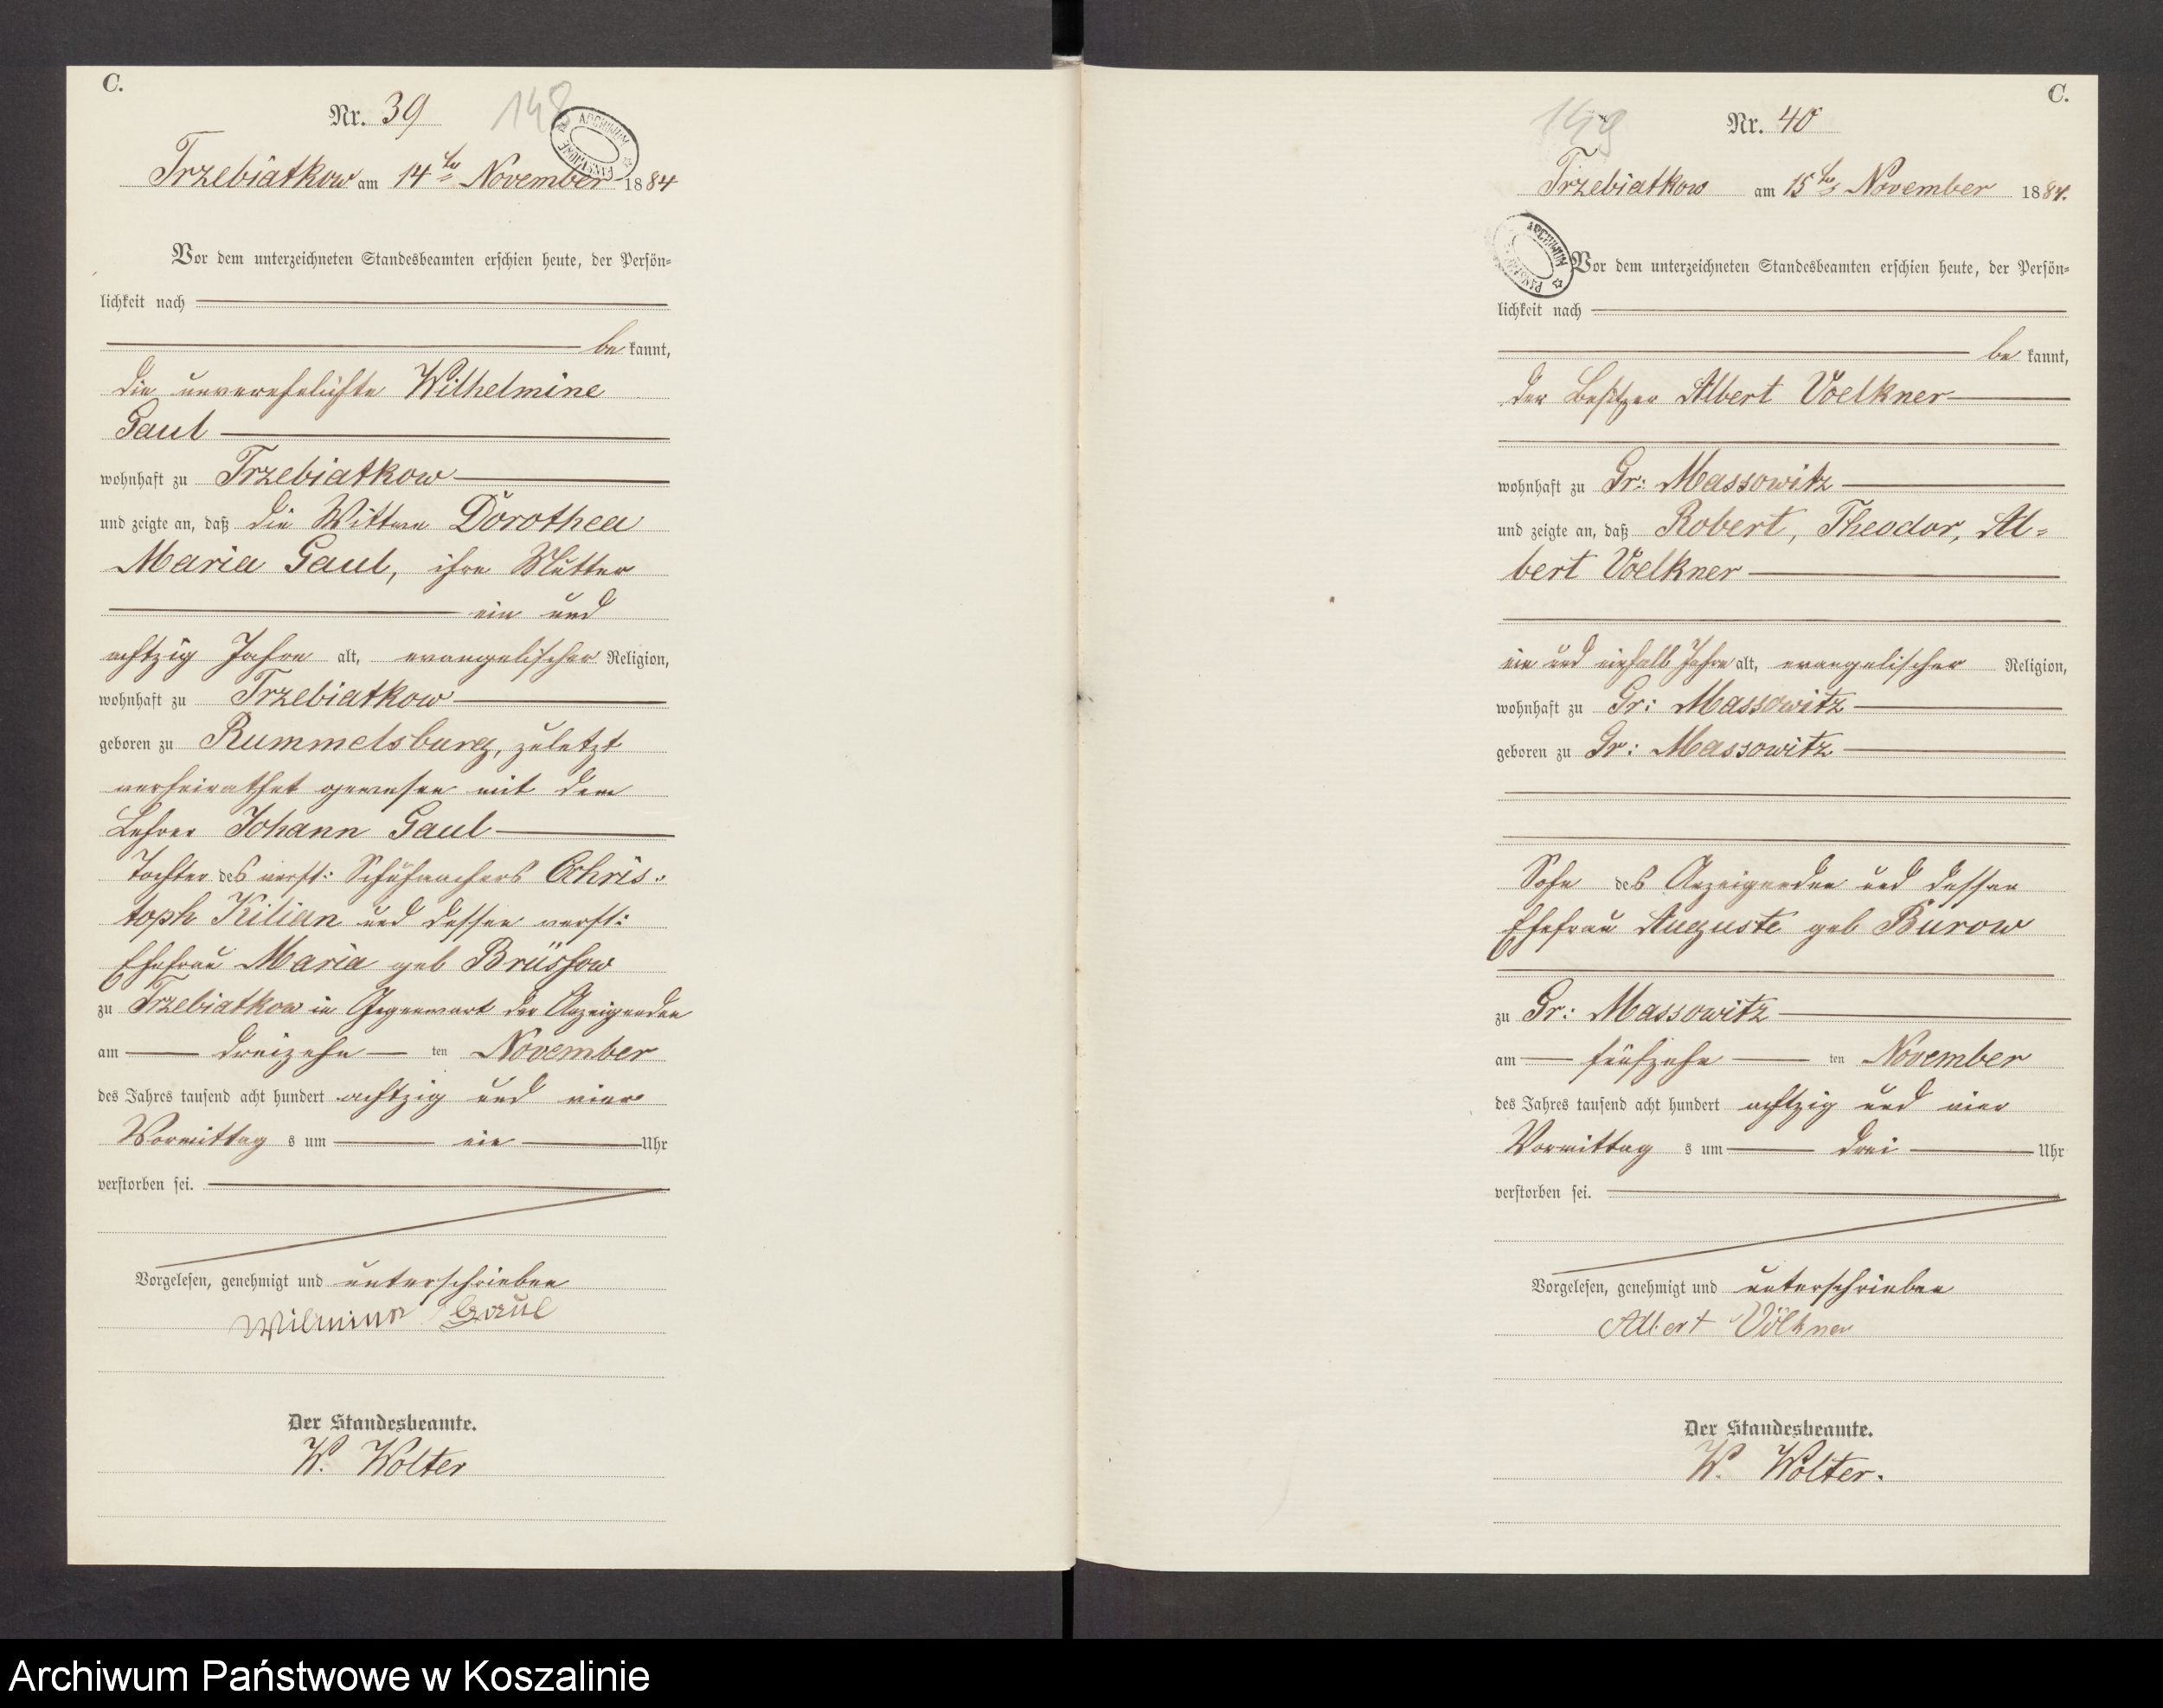 C.
Nr. 39
148
ARCHIWUM PAŃSTWOWE
Trzebiatkow am 14ten November 1884
Vor dem unterzeichneten Standesbeamten erschien heute, der Persön=
lichkeit nach
be kannt,
die unverehelichte Wilhelmine
Gaul
wohnhaft zu Trzebiatkow
und zeigte an, daß die Wittwe Dorothea
Maria Gaul, ihre Mutter
ein und
achtzig Jahre alt, evangelischer Religion,
wohnhaft zu Trzebiatkow
geboren zu Rummelsburg, zuletzt
verheirathet gewesen mit dem
Lehrer Johann Gaul
Tochter des verst: Schuhmachers Chris=
toph Kilian und dessen verst:
Ehefrau Maria geb Brüssow
zu Trzebiatkow in Gegenwart der Anzeigenden
am dreizehn ten November
des Jahres tausend acht hundert achtzig und vier
Vormittag s um ein Uhr
verstorben sei.
Vorgelesen, genehmigt und unterschrieben
Wilmine Gaul
Der Standesbeamte.
W. Wolter
C.
Nr. 40
149
Trzebiatkow am 15ten November 1884.
ARCHIWUM
Vor dem unterzeichneten Standesbeamten erschien heute, der Persön=
lichkeit nach
be kannt,
der Besitzer Albert Voelkner
wohnhaft zu Gr: Massowitz
und zeigte an, daß Robert, Theodor, Al=
bert Voelkner
ein und einhalb Jahre alt, evangelischer Religion,
wohnhaft zu Gr: Massowitz
geboren zu Gr: Massowitz
Sohn des Anzeigenden und dessen
Ehefrau Auguste geb Burow
zu Gr: Massowitz
am fünfzehn ten November
des Jahres tausend acht hundert achtzig und vier
Vormittag s um drei Uhr
verstorben sei.
Vorgelesen, genehmigt und unterschrieben
Albert Völkner
Der Standesbeamte.
W. Wolter.
Archiwum Państwowe w Koszalinie